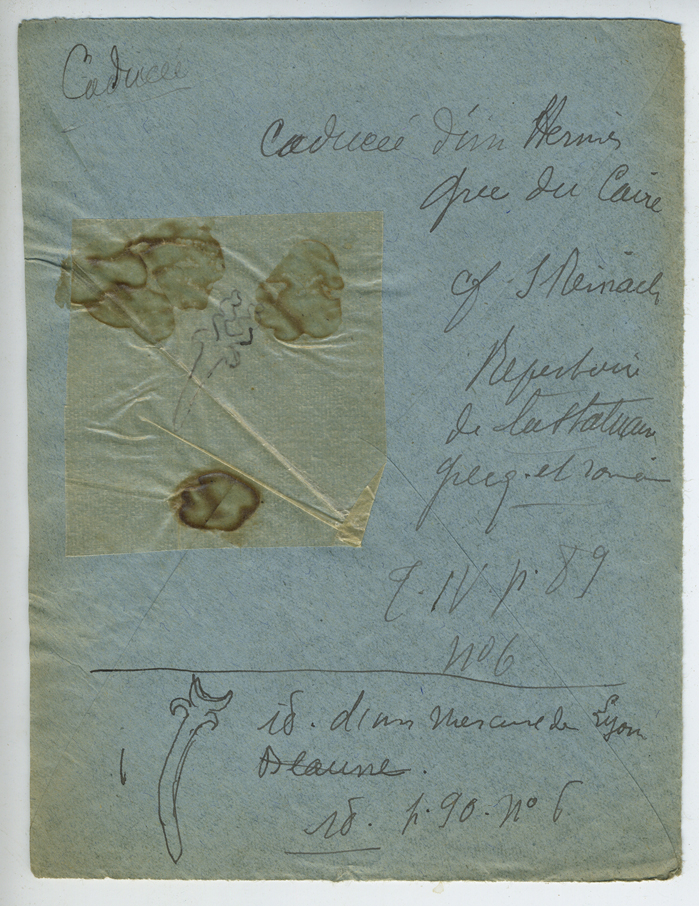 Caducée
Caducée d'un Hermès
grec du Caire
cf S Reinach
Répertoire
de la Statuaire
grecq. et romain
T. IV p. 89
no 6
id. d'un Mercure de Lyon
Beaune.
id. p. 90. no 6